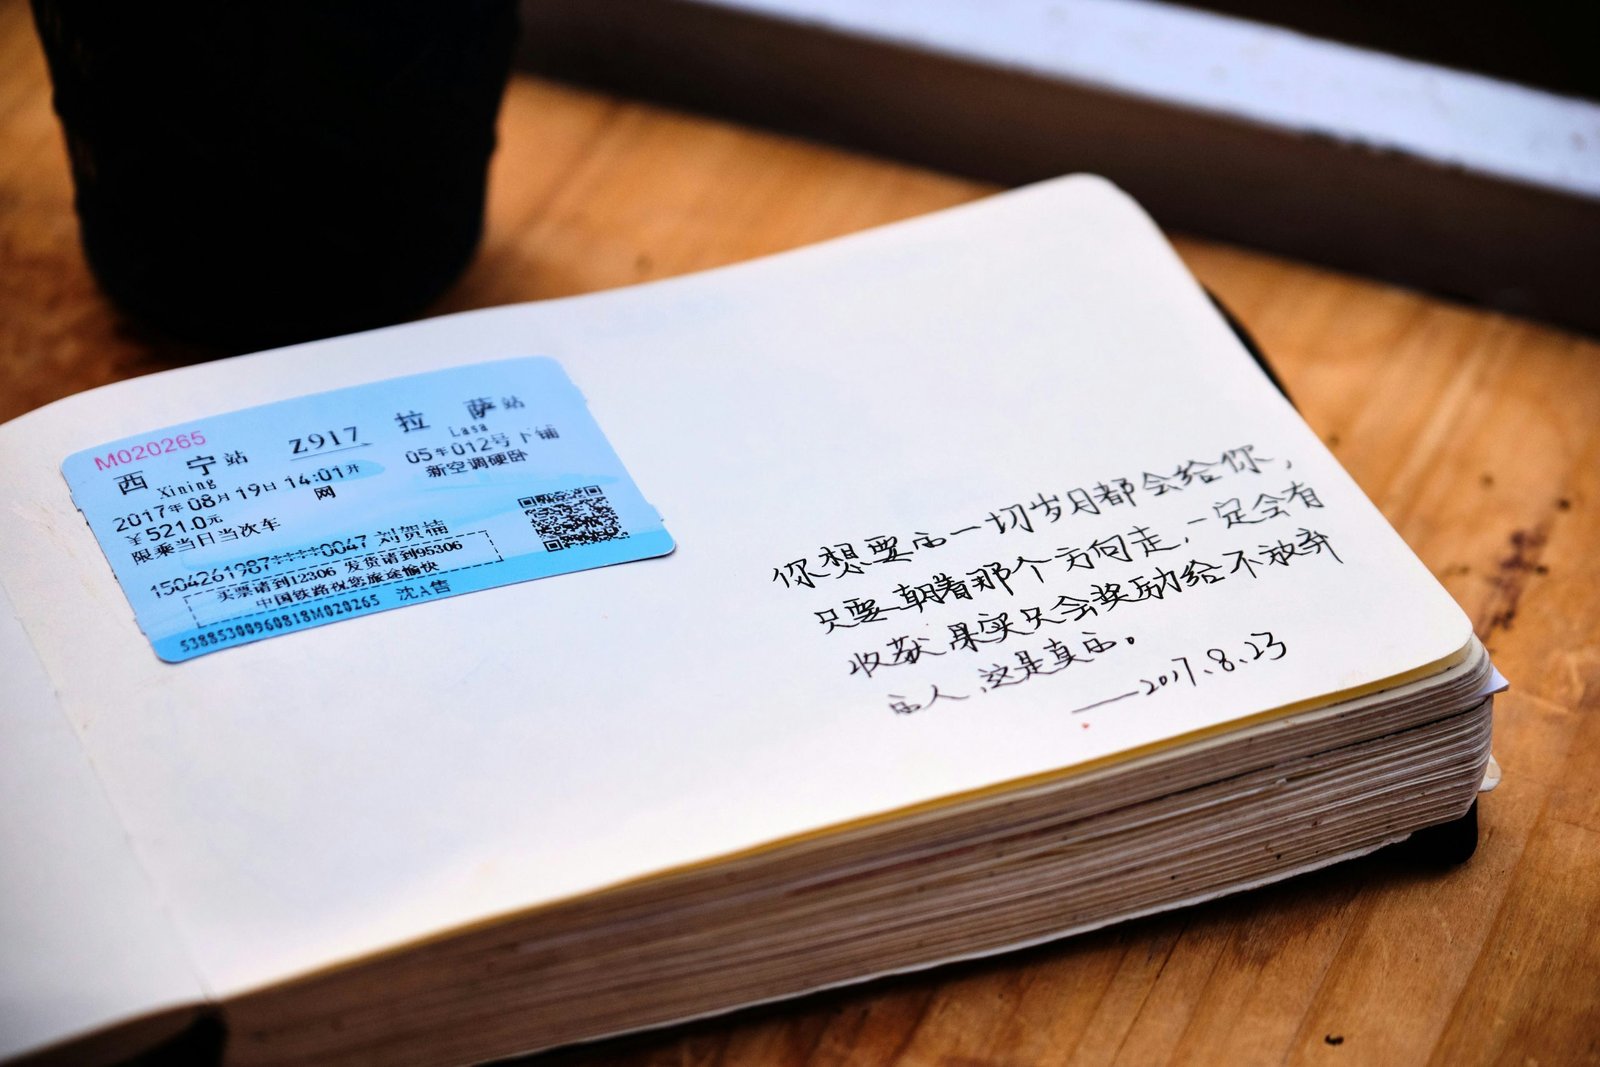 M020265
西 宁站 Z917 拉 萨站
Xining Lasa
2017年08月19日14:01开 05车012号下铺
¥521.0元 网 新空调硬卧
限乘当日当次车
1504261987****0047 刘贺楠
买票请到12306 发货请到95306
中国铁路祝您旅途愉快
53885300960818M020265 沈A售
你想要的一切岁月都会给你，
只要朝着那个方向走，一定会有
收获果实只会奖励给不放弃
的人，这是真的。
——2017.8.23